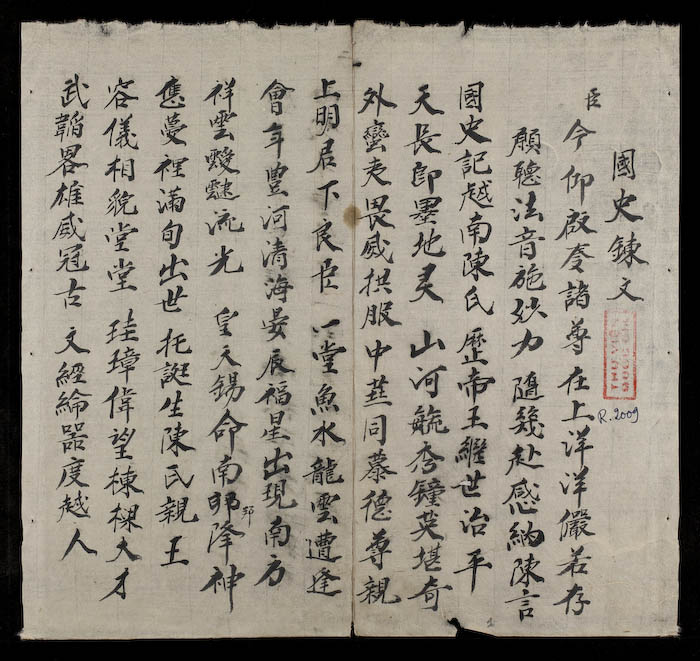 國史鍊文
臣今仰啟諸尊在上洋洋儼若存
願聽法音施妙力 隨幾赴感納陳言
國史記越南陳氏 歷帝王繼世治平
天長即墨地灵 山河毓秀鐘英堪奇
外蠻夷畏威拱服 中同慕德尊親
上明君下良臣 一堂魚水龍雲遭逢
會年豊河清海晏辰福星出現南方
祥雲靉靆流光 皇天錫命南邦降神
應夢裡滿旬出世 托誕生陳氏親王
容儀相貌堂堂 珪璋偉望棟樑大才
武韜畧雄威冠古 文經綸器度越人
THU VIEN
R.2009